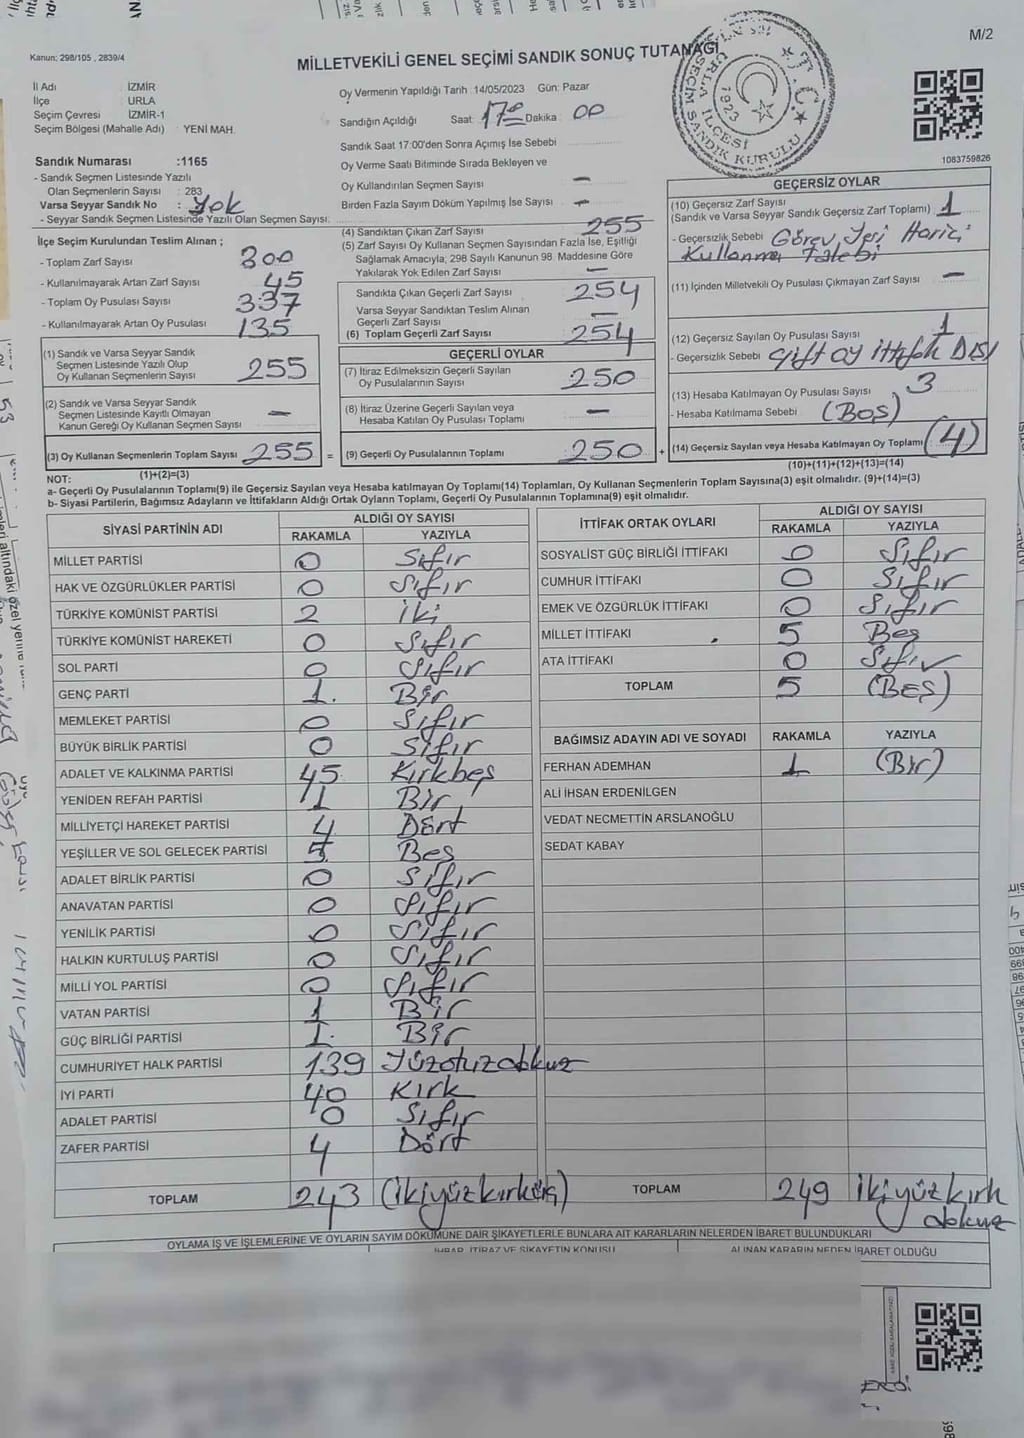 M/2
Kanun: 298/105 , 2839/4
MİLLETVEKİLİ GENEL SEÇİMİ SANDIK SONUÇ TUTANAĞI
T.C.
1923
URLA İLÇESİ
SEÇİM SANDIK KURULU
İl Adı İZMİR
İlçe URLA
Seçim Çevresi İZMİR-1
Seçim Bölgesi (Mahalle Adı) YENİ MAH.
Sandık Numarası :1165
- Sandık Seçmen Listesinde Yazılı
Olan Seçmenlerin Sayısı : 283
Varsa Seyyar Sandık No : Yok
- Seyyar Sandık Seçmen Listesinde Yazılı Olan Seçmen Sayısı:
İlçe Seçim Kurulundan Teslim Alınan ;
- Toplam Zarf Sayısı 300
- Kullanılmayarak Artan Zarf Sayısı 45
- Toplam Oy Pusulası Sayısı 337
- Kullanılmayarak Artan Oy Pusulası 135
(1) Sandık ve Varsa Seyyar Sandık
Seçmen Listesinde Yazılı Olup
Oy Kullanan Seçmenlerin Sayısı 255
(2) Sandık ve Varsa Seyyar Sandık
Seçmen Listesinde Kayıtlı Olmayan
Kanun Gereği Oy Kullanan Seçmen Sayısı —
(3) Oy Kullanan Seçmenlerin Toplam Sayısı 255 =
(1)+(2)=(3)
Oy Vermenin Yapıldığı Tarih :14/05/2023 Gün: Pazar
Sandığın Açıldığı Saat 17:00 Dakika 00
Sandık Saat 17:00'den Sonra Açımış İse Sebebi
Oy Verme Saati Bitiminde Sırada Bekleyen ve
Oy Kullandırılan Seçmen Sayısı —
Birden Fazla Sayım Döküm Yapılmış İse Sayısı —
(4) Sandıktan Çıkan Zarf Sayısı 255
(5) Zarf Sayısı Oy Kullanan Seçmen Sayısından Fazla İse, Eşitliği
Sağlamak Amacıyla, 298 Sayılı Kanunun 98. Maddesine Göre
Yakılarak Yok Edilen Zarf Sayısı —
Sandıkta Çıkan Geçerli Zarf Sayısı 254
Varsa Seyyar Sandıktan Teslim Alınan
Geçerli Zarf Sayısı —
(6) Toplam Geçerli Zarf Sayısı 254
GEÇERLİ OYLAR
(7) İtiraz Edilmeksizin Geçerli Sayılan
Oy Pusulalarının Sayısı 250
(8) İtiraz Üzerine Geçerli Sayılan veya
Hesaba Katılan Oy Pusulası Toplamı —
(9) Geçerli Oy Pusulalarının Toplamı 250 +
1083759826
GEÇERSİZ OYLAR
(10) Geçersiz Zarf Sayısı 1
(Sandık ve Varsa Seyyar Sandık Geçersiz Zarf Toplamı)
- Geçersizlik Sebebi Görev Yeri Harici
Kullanma Talebi
(11) İçinden Milletvekili Oy Pusulası Çıkmayan Zarf Sayısı —
(12) Geçersiz Sayılan Oy Pusulası Sayısı 1
- Geçersizlik Sebebi Çift oy İttifak DIŞI
(13) Hesaba Katılmayan Oy Pusulası Sayısı 3
- Hesaba Katılmama Sebebi (Boş)
(14) Geçersiz Sayılan veya Hesaba Katılmayan Oy Toplamı (4)
(10)+(11)+(12)+(13)=(14)
NOT:
a- Geçerli Oy Pusulalarının Toplamı(9) ile Geçersiz Sayılan veya Hesaba katılmayan Oy Toplamı(14) Toplamları, Oy Kullanan Seçmenlerin Toplam Sayısına(3) eşit olmalıdır. (9)+(14)=(3)
b- Siyasi Partilerin, Bağımsız Adayların ve İttifakların Aldığı Ortak Oyların Toplamı, Geçerli Oy Pusulalarının Toplamına(9) eşit olmalıdır.
SİYASİ PARTİNİN ADI ALDIĞI OY SAYISI
RAKAMLA YAZIYLA
MİLLET PARTİSİ 0 Sıfır
HAK VE ÖZGÜRLÜKLER PARTİSİ 0 Sıfır
TÜRKİYE KOMÜNİST PARTİSİ 2 İki
TÜRKİYE KOMÜNİST HAREKETİ 0 Sıfır
SOL PARTİ 0 Sıfır
GENÇ PARTİ 1. Bir
MEMLEKET PARTİSİ 0 Sıfır
BÜYÜK BİRLİK PARTİSİ 0 Sıfır
ADALET VE KALKINMA PARTİSİ 45 Kırkbeş
YENİDEN REFAH PARTİSİ 1 Bir
MİLLİYETÇİ HAREKET PARTİSİ 4 Dört
YEŞİLLER VE SOL GELECEK PARTİSİ 5 Beş
ADALET BİRLİK PARTİSİ 0 Sıfır
ANAVATAN PARTİSİ 0 Sıfır
YENİLİK PARTİSİ 0 Sıfır
HALKIN KURTULUŞ PARTİSİ 0 Sıfır
MİLLİ YOL PARTİSİ 0 Sıfır
VATAN PARTİSİ 1 Bir
GÜÇ BİRLİĞİ PARTİSİ 1. Bir
CUMHURİYET HALK PARTİSİ 139 Yüzotuzdokuz
İYİ PARTİ 40 Kırk
ADALET PARTİSİ 0 Sıfır
ZAFER PARTİSİ 4 Dört
TOPLAM 243 (ikiyüzkırküç)
İTTİFAK ORTAK OYLARI ALDIĞI OY SAYISI
RAKAMLA YAZIYLA
SOSYALİST GÜÇ BİRLİĞİ İTTİFAKI 0 Sıfır
CUMHUR İTTİFAKI 0 Sıfır
EMEK VE ÖZGÜRLÜK İTTİFAKI 0 Sıfır
MİLLET İTTİFAKI 5 Beş
ATA İTTİFAKI 0 Sıfır
TOPLAM 5 (BEŞ)
BAĞIMSIZ ADAYIN ADI VE SOYADI RAKAMLA YAZIYLA
FERHAN ADEMHAN 1 (Bir)
ALİ İHSAN ERDENİLGEN
VEDAT NECMETTİN ARSLANOĞLU
SEDAT KABAY
TOPLAM 249 ikiyüzkırk
dokuz
OYLAMA İŞ VE İŞLEMLERİNE VE OYLARIN SAYIM DÖKÜMÜNE DAİR ŞİKAYETLERLE BUNLARA AİT KARARLARIN NELERDEN İBARET BULUNDUKLARI
İHBAR, İTİRAZ VE ŞİKAYETİN KONUSU ALINAN KARARIN NEDEN İBARET OLDUĞU